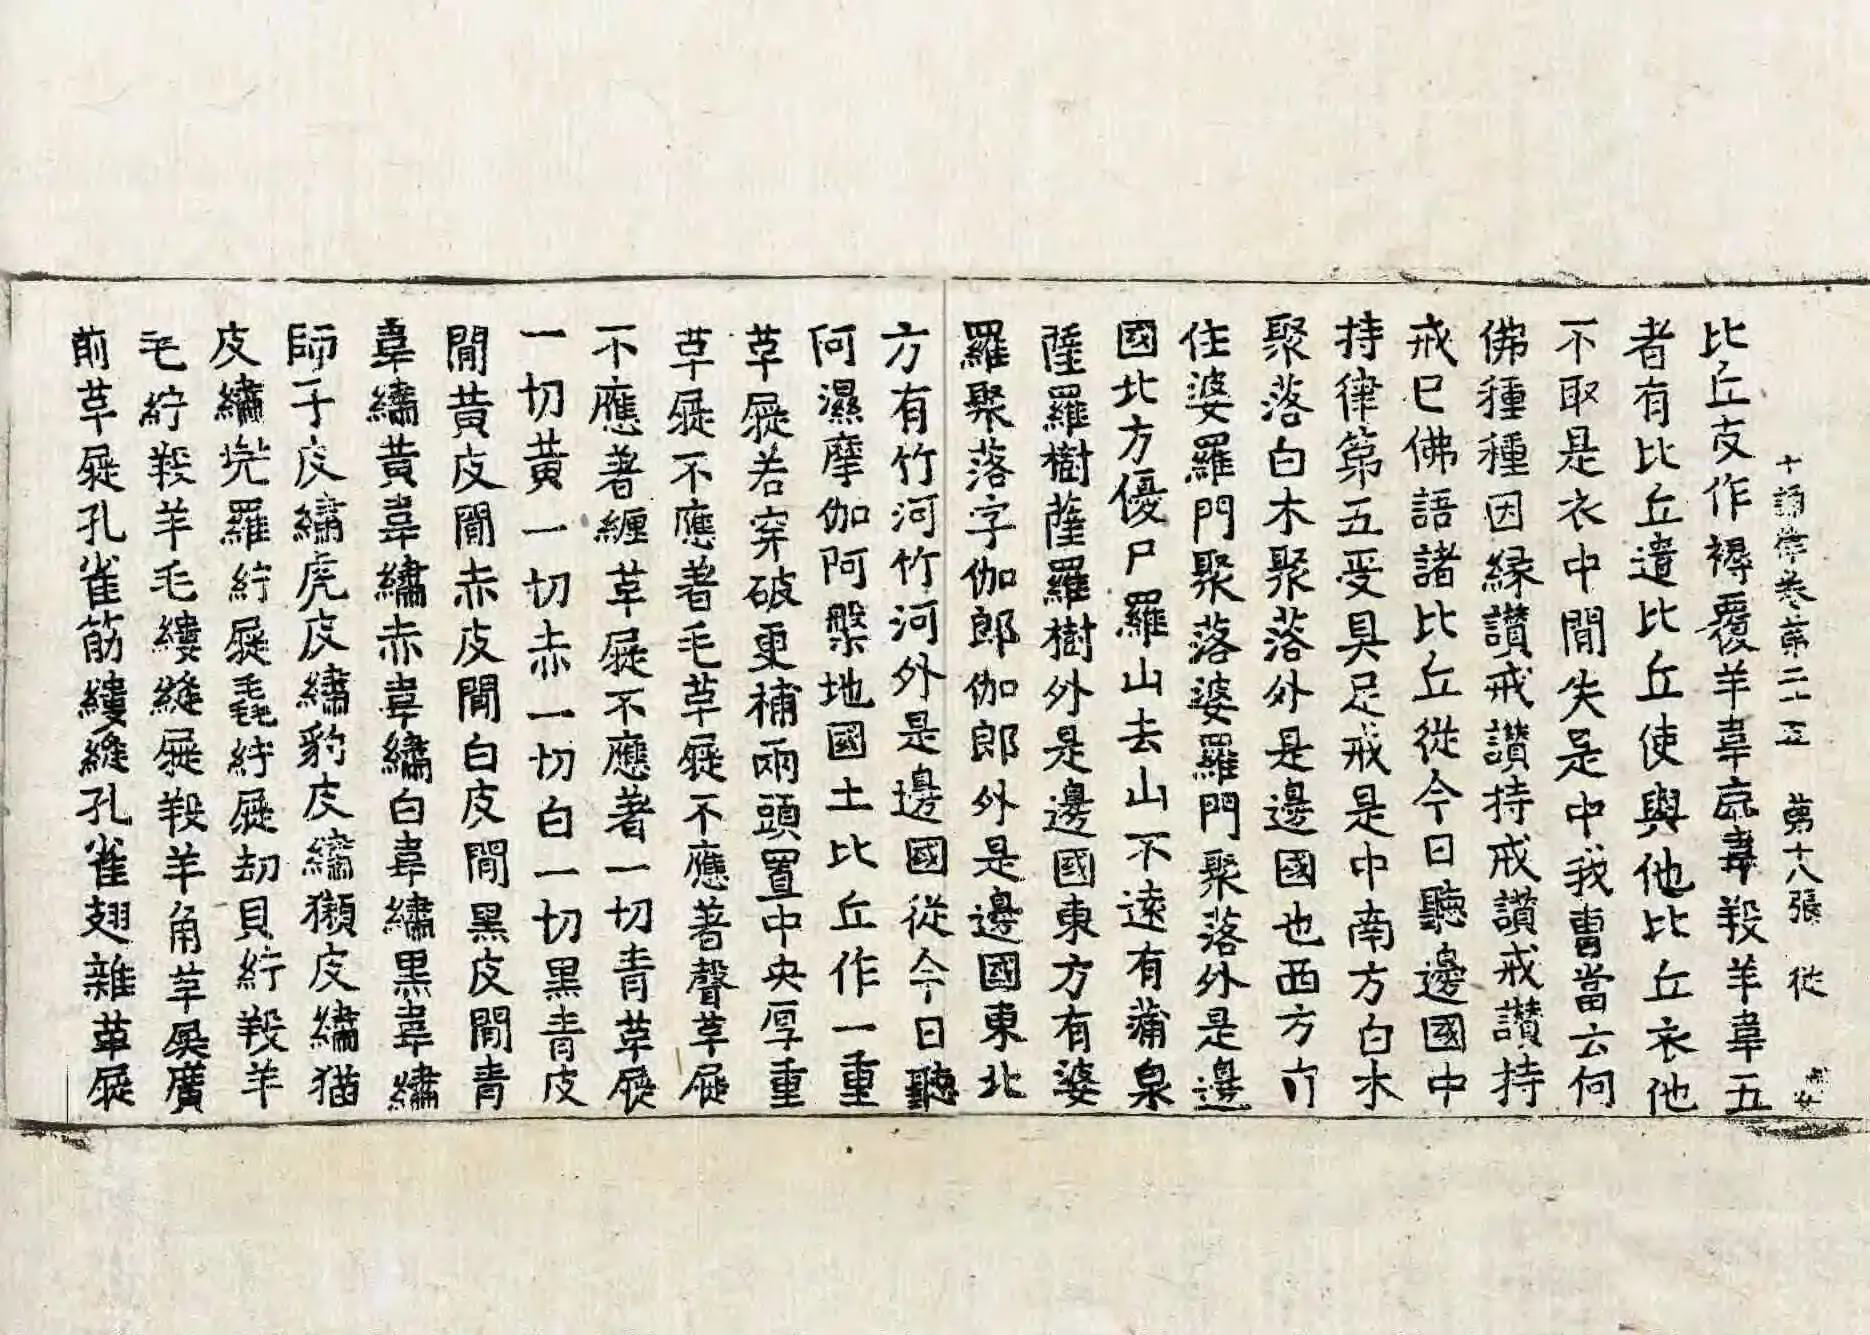 十誦律卷第二十五 第十八張 從
比丘友作褥覆羊韋鹿韋羖羊韋五
者有比丘遣比丘使與他比丘衣他
不取是衣中間失是中我曹當云何
佛種種因緣讚戒讚持戒讚戒讚持
戒已佛語諸比丘從今日聽邊國中
持律第五受具足戒是中南方白木
聚落白木聚落外是邊國也西方有
住婆羅門聚落婆羅門聚落外是邊
國北方優尸羅山去山不遠有蒲泉
薩羅樹薩羅樹外是邊國東方有婆
羅聚落字伽郎伽郎外是邊國東北
方有竹河竹河外是邊國從今日聽
阿濕摩伽阿槃地國土比丘作一重
革屣若穿破更補兩頭置中央厚重
革屣不應著毛革屣不應著聲革屣
不應著纏革屣不應著一切青革屣
一切黃一切赤一切白一切黑青皮
間黃皮間赤皮間白皮間黑皮間青
韋繡黃韋繡赤韋繡白韋繡黑韋繡
師子皮繡虎皮繡豹皮繡獺皮繡猫
皮繡兜羅紵屣毳紵屣劫貝紵羖羊
毛紵羖羊毛縷縫屣羖羊角革屣廣
前革屣孔雀筋縷縫孔雀翅雜革屣